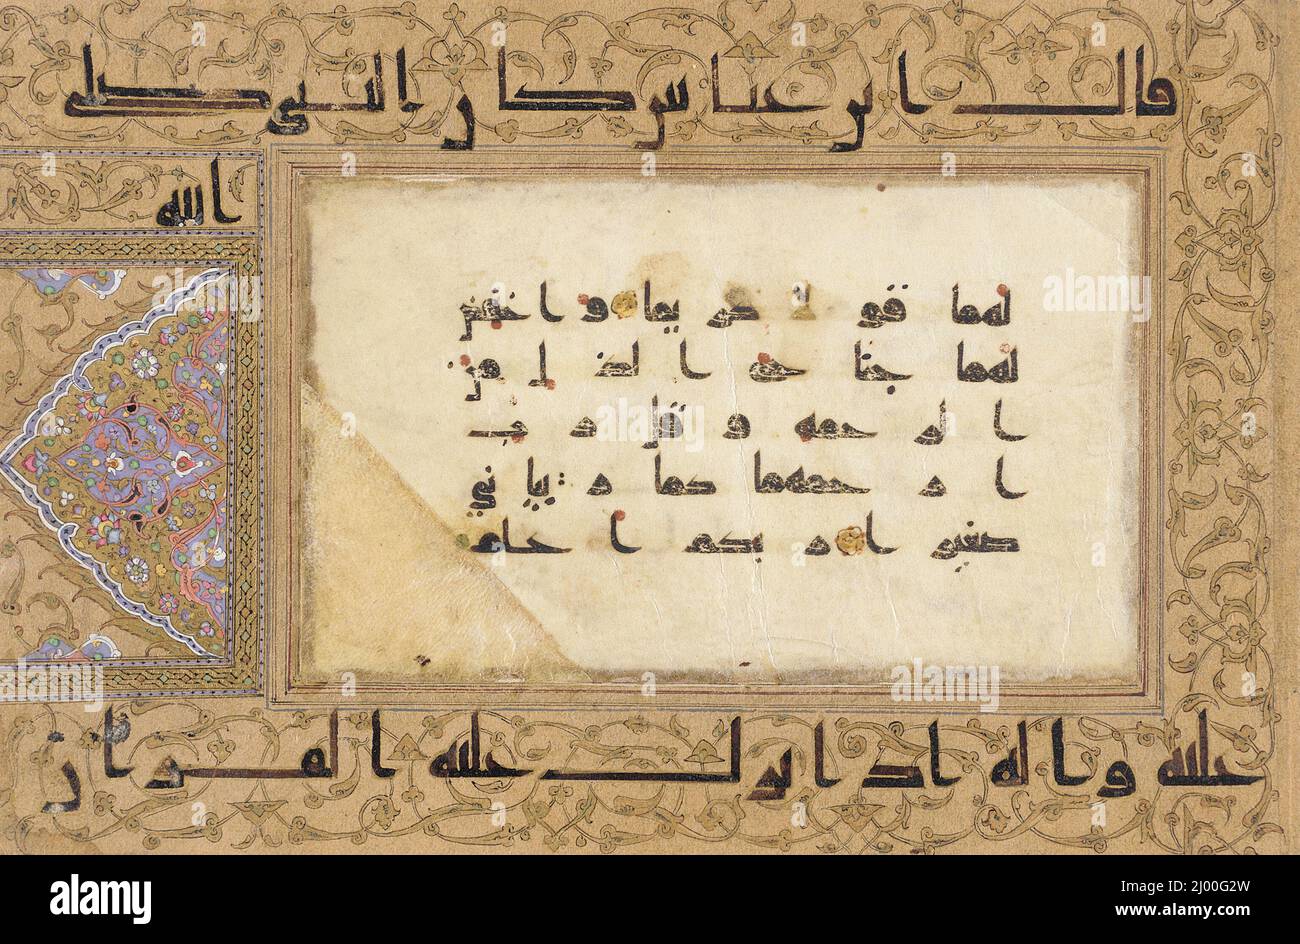 قال ابن عباس كان النبي صلى
الله
لهما قولا كريما واخفض
لهما جناح الذل من
الرحمة وقل رب
ارحمهما كما ربياني
صغيرا ربكم اعلم
عليه وآله اذا نزل عليه القرآن
alamy
Image ID: 2J00G2W
www.alamy.com